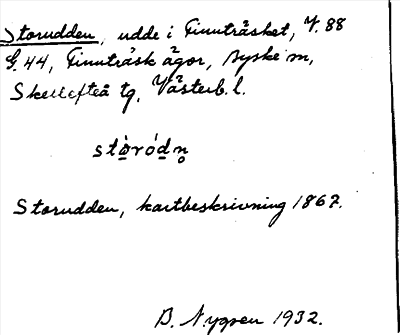 Storudden, udde i Finnträsket, V. 88
G. 44, Finnträsk ägor, Byske sn,
Skellefteå tg, Västerb. l.
stòródn̥
Storudden, kartbeskrivning 1867.
B. Nygren 1932.